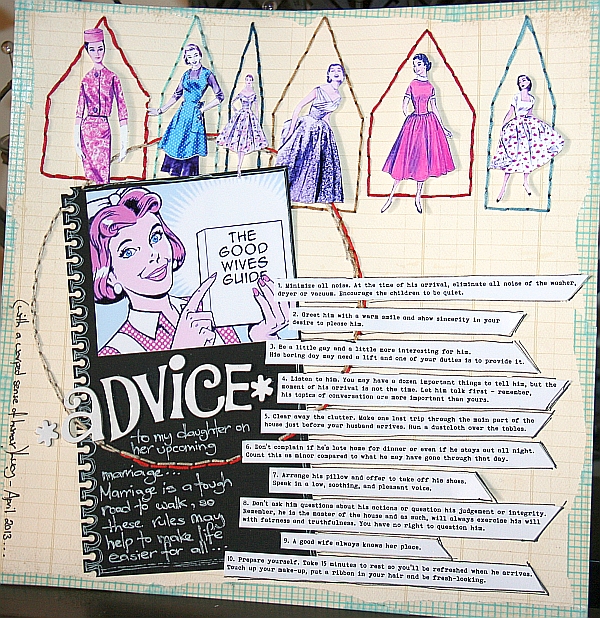 THE
GOOD
WIVES
GUIDE
1. Minimise all noise. At the time of his arrival, eliminate all noise of the washer,
dryer or vacuum. Encourage the children to be quiet.
2. Greet him with a warm smile and show sincerity in your
desire to please him.
3. Be a little gay and a little more interesting for him.
His boring day may need a lift and one of your duties is to provide it.
4. Listen to him. You may have a dozen important things to tell him, but the
moment of his arrival is not the time. Let him talk first - remember,
his topics of conversation are more important than yours.
5. Clear away the clutter. Make one last trip through the main part of the
house just before your husband arrives. Run a dustcloth over the tables.
6. Don't complain if he's late home for dinner or even if he stays out all night.
Count this as minor compared to what he may have gone through that day.
7. Arrange his pillow and offer to take off his shoes.
Speak in a low, soothing, and pleasant voice.
8. Don't ask him questions about his actions or question his judgement or integrity.
Remember, he is the master of the house and as such, will always exercise his will
with fairness and truthfulness. You have no right to question him.
9. A good wife always knows her place.
10. Prepare yourself. Take 15 minutes to rest so you'll be refreshed when he arrives.
Touch up your make-up, put a ribbon in your hair and be fresh-looking.
*aDVICE*
to my daughter on
her upcoming
marriage...
Marriage is a tough
road to walk, so
these rules may
help to make life
easier for all...
(with a warped sense of humour) Love - April 2013...